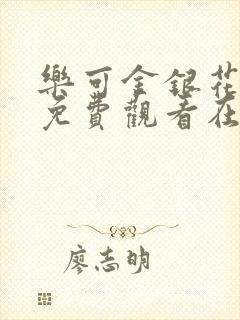 樂可金銀花
免費觀看在
廖志明